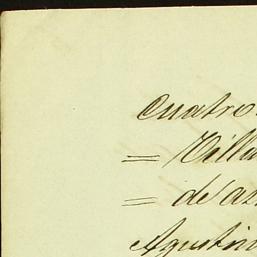 Cuatro
= Villa
= de as
Agustin